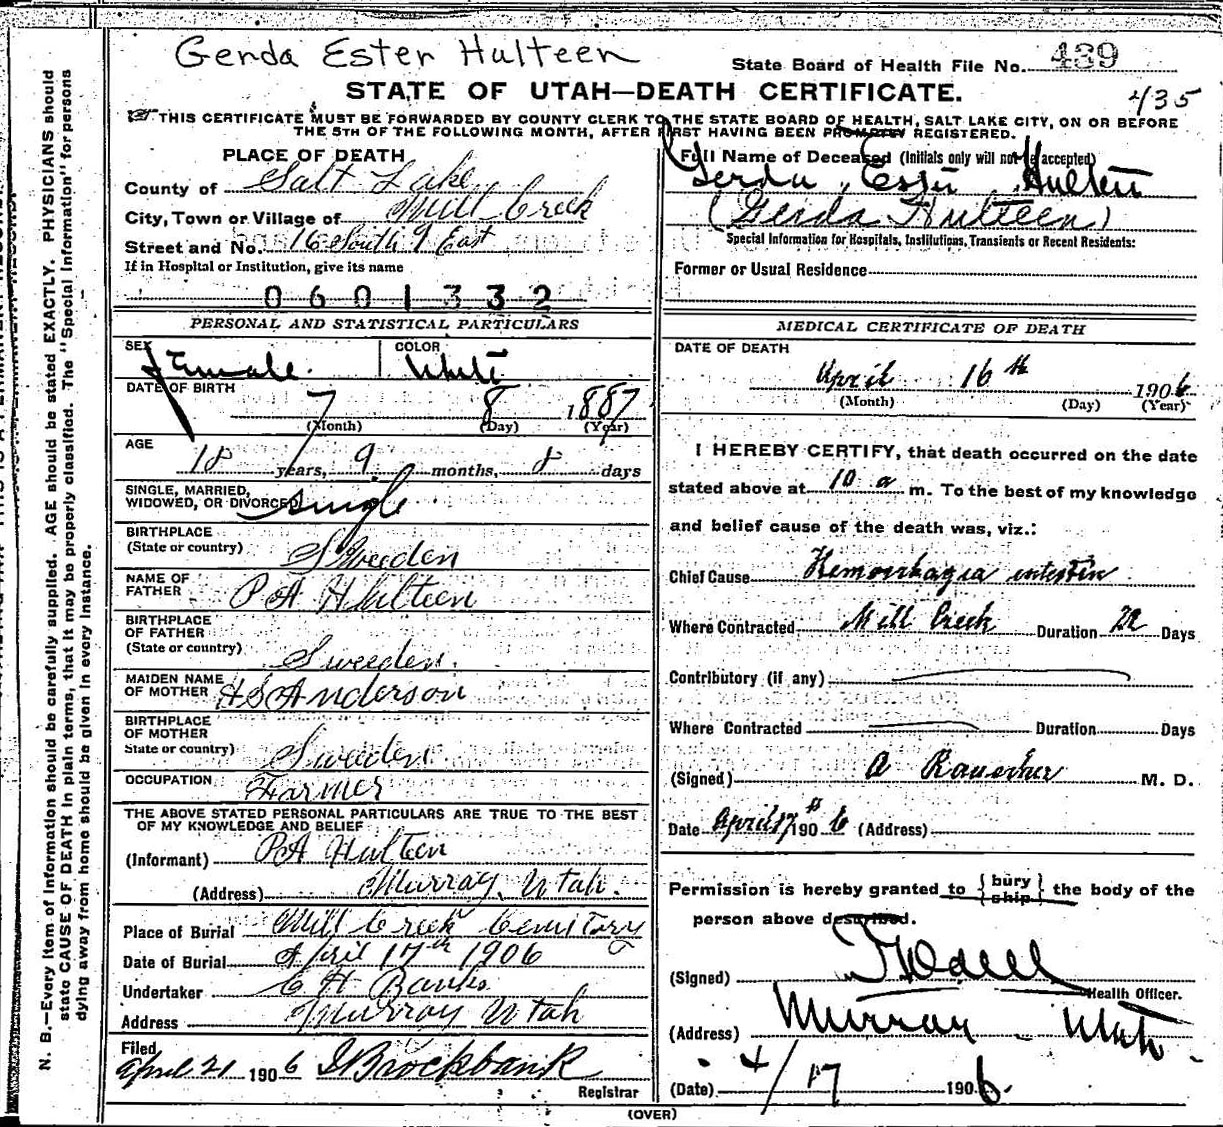 Gerda Ester Hulteen
State Board of Health File No. 439
STATE OF UTAH—DEATH CERTIFICATE.
435
THIS CERTIFICATE MUST BE FORWARDED BY COUNTY CLERK TO THE STATE BOARD OF HEALTH, SALT LAKE CITY, ON OR BEFORE
THE 5TH OF THE FOLLOWING MONTH, AFTER FIRST HAVING BEEN PROMPTLY REGISTERED.
PLACE OF DEATH
County of Salt Lake
City, Town or Village of Mill Creek
Street and No. 16 South 9 East
If in Hospital or Institution, give its name
0601332
PERSONAL AND STATISTICAL PARTICULARS
SEX Female COLOR White
DATE OF BIRTH
7 8 1887
(Month) (Day) (Year)
AGE
18 years, 9 months, 8 days
SINGLE, MARRIED,
WIDOWED, OR DIVORCED single
BIRTHPLACE
(State or country) Sweeden
NAME OF
FATHER P A Hulteen
BIRTHPLACE
OF FATHER
(State or country) Sweeden.
MAIDEN NAME
OF MOTHER H S Anderson
BIRTHPLACE
OF MOTHER
State or country) Sweeden.
OCCUPATION Farmer
THE ABOVE STATED PERSONAL PARTICULARS ARE TRUE TO THE BEST
OF MY KNOWLEDGE AND BELIEF
(Informant) P A Hulteen
(Address) Murray, Utah.
Place of Burial Mill Creek Cemitary
Date of Burial April 17th 1906
Undertaker C H Banks
Address Murray Utah
Filed
April 21 1906 Brockbank
Registrar
Full Name of Deceased (Initials only will not be accepted)
Gerda Ester Hulten
(Gerda Hulteen)
Special Information for Hospitals, Institutions, Transients or Recent Residents:
Former or Usual Residence
MEDICAL CERTIFICATE OF DEATH
DATE OF DEATH
April 16th 1906
(Month) (Day) (Year)
I HEREBY CERTIFY, that death occurred on the date
stated above at 10 a m. To the best of my knowledge
and belief cause of the death was, viz.:
Chief Cause Hemorrhagia intestin
Where Contracted Mill Creek Duration 22 Days
Contributory (if any)
Where Contracted Duration Days
(Signed) A Rauscher M. D.
Date April 17th 1906 (Address)
Permission is hereby granted to { bury ship } the body of the
person above described.
(Signed)
Health Officer.
(Address) Murray Utah
(Date) 4/17 1906.
(OVER)
N. B.—Every item of information should be carefully supplied. AGE should be stated EXACTLY. PHYSICIANS should
state CAUSE OF DEATH in plain terms, that it may be properly classified. The "Special Information" for persons
dying away from home should be given in every instance.